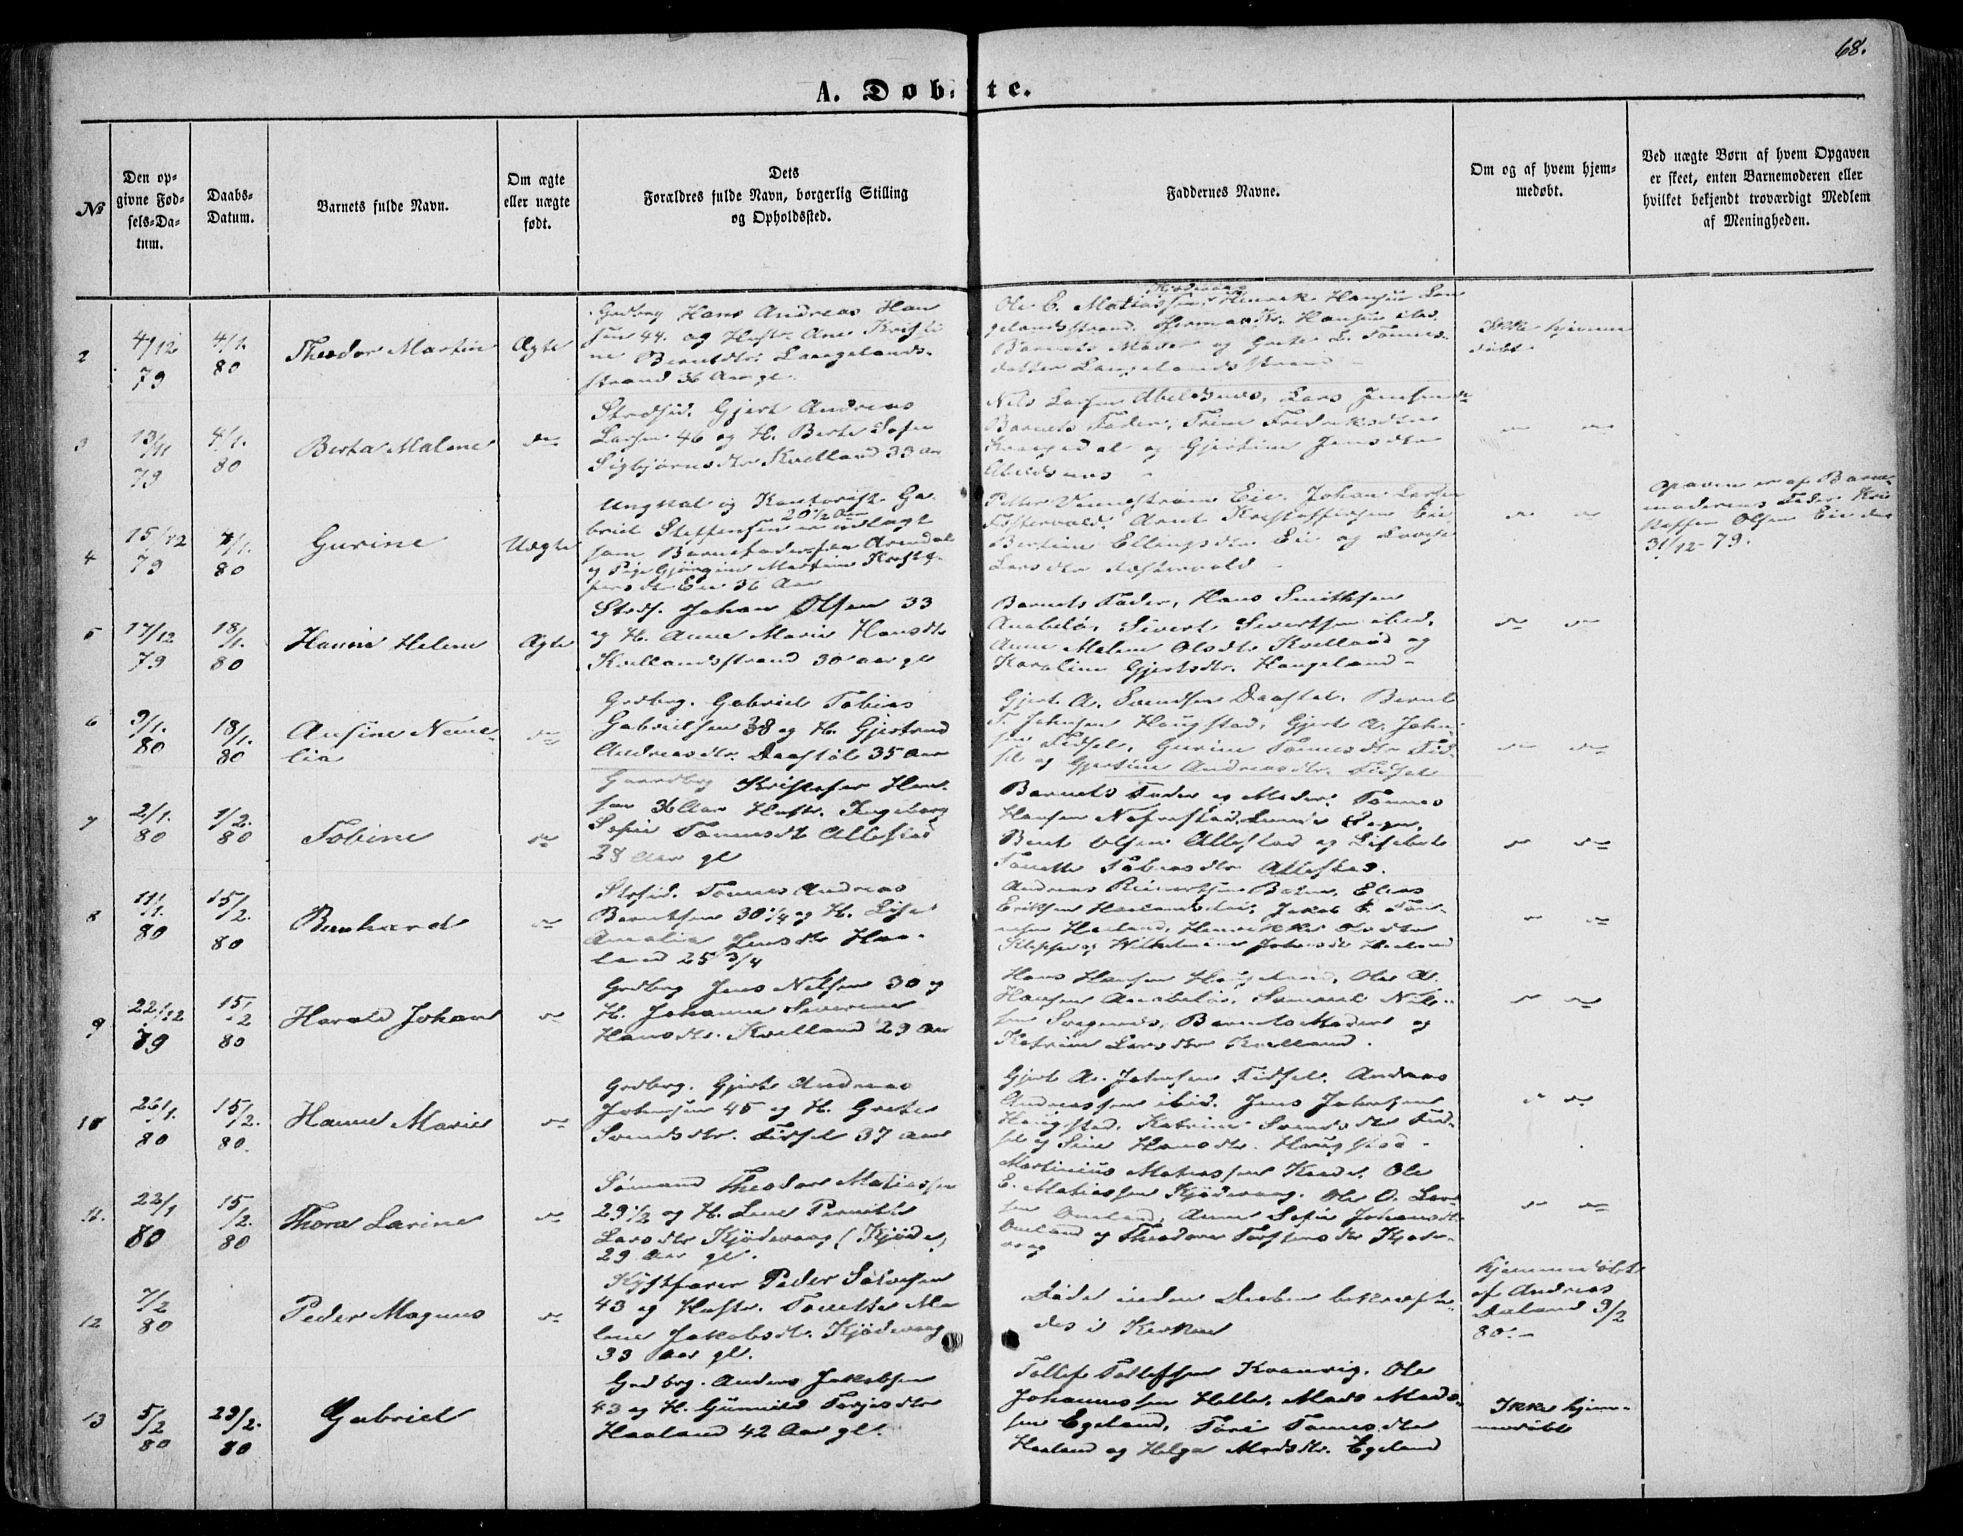 68.
A. Døbte.
№
Den opgivne Fødsels-Datum.
Daabs-Datum.
Barnets fulde Navn.
Om ægte eller uægte født.
Dets Forældres fulde Navn, borgerlig Stilling og Opholdssted.
Faddernes Navne.
Om og af hvem hjemmedøbt.
Ved uægte Børn af hvem Opgaven er skeet, enten Barnemoderen eller hvilket bekjendt troværdigt Medlem af Meningheden.
2
4/12 79
4/1. 80
Theodor Martin
Ægte
Grdbrg Hans Andreas Han
sen 44. og Hustr. Ane Kristi
ne Berntdtr. Langelands-
strand 36 Aar gl.
Kjødevaag
Ole C. Matiassen, Henrik Hansen Lan
gelandsstrand. Herman Kr. Hansen ibid.
Barnets Moder og Grete L. Tønnes
datter Langelandsstrand
Ikke hjemme
døbt
3
13/11 79
4/1. 80
Berta Malene
do
Strdsid. Gjert Andreas
Larsen 46 og H. Berte Sofie
Sigbjørnsdtr Kvelland 33 Aar
Nils Larsen Abelsnes, Lars Jensen do
Barnets Fader, Trine Fredriksdtr
og Gjertine Jensdtr
Abelsnes
do do
4
15/12 79
4/1. 80
Gurine
Uægte
Ungkal og Kontorist Ga-
20 1/2 Aar
briel Steffensen er udlagt
som Barnefader fra Arendal
og Pige Gjørgine Martine Kristof-
fersdtr Eie 36 Aar
Petter Vennstrøm Eie. Johan Larsen
Arnt Kristoffersen Eie
Bertine Ellingsdtr Eie og Lovise
Larsdtr
do do
Opgaven er af Barne-
moderens Fader Kri
stoffer Olsen Eie den
31/12-79.
5
17/12 79
18/1. 80
Hanne Helene
Ægte
Strds. Johan Olsen 33
og H. Anne Marie Hansdtr
Kvellandsstrand 30 aar gl
Barnets Fader, Hans Smithsen
Anabeløe, Sivert Sivertsen ibid,
Anne Malene Olsdtr Kvelland og
Karoline Gjertsdtr. Haugeland -
do do
6
9/1. 80
18/1. 80
Ansine Neme-
lia
do
Grdbrg. Gabriel Tobias
Gabrielsen 38 og H. Gjertrud
Andreasdtr. Daastøl 35 Aar
Gjert A. Svendsen Daastøl. Bernt
T. Johnsen Haugstad, Gjert A. John-
sen Fidsel, Gurine Tønnesdtr Fid-
sel og Gjertine Andreasdtr. Fidsel
do do
7
2/1. 80
1/2. 80
Tobine
do
Gaardbrg Kristofer Han-
sen 36 Aar Hustr. Ingeborg
Sofie Tønnesdtr Allestad
28 Aar gl
Barnets Fader og Moder. Tønnes
Hansen
Bent Olsen Allestad og Lisebet
Tonette Tobiasdtr Allestad.
do do
8
11/1. 80
15/2. 80
Bernhard
do
Strdsid. Tønnes Andreas
Berntsen 30 1/4 og H. Lise
Amalia Jensdtr Haa-
land 25 3/4
Andreas Reinertsen Eeg, Elias
Eriksen Jakob E. Tøn-
nesen Haaland, Henrikke Olsdtr
og Wilhelmine Johansdtr Haaland
do do
9
22/12 79
15/2 80
Harald Johan
do
Grdbrg Jens Nilsen 30 og
H. Johanne Severine
Hansdtr. Kvelland 29 Aar
Hans Hansen Haugeland, Ole A.
Hansen Anabeløe, Samuel Nil-
sen Svegenes, Barnets Moder og
Katrine Larsdtr Kvelland.
do do
10
26/1. 80
15/2. 80.
Hanne Marie
do
Grdbrg. Gjert Andreas
Johnsen 45 og H. Grete
Svendsdtr. Fidsel 37 aar
Gjert A. Johnsen Fidsel. Andreas
Andreassen ibid. Jens Johnsen
Haugstad, Katrine Svendsdtr Fid-
sel og Sine Hansdtr. Haugstad.
do do
11.
22/1 80
15/2. 80
Thora Larine
do
Sømand Theodor Matiassen
29 1/2 og H. Lene Pernille
Larsdtr Kjødevaag (Kjøde)
29 Aar gl.
Martinius Matiassen Ole
E. Matiassen Kjødevaag. Ole O. Lar-
sen Omland, Anne Sofie Johansdtr
Omland og Theodore Torstensdtr Kjøde-
vaag
do do
12
7/2 80
Peder Magnus
do
Kystfarer Peder Salvesen
43 og Hustr. Tonette Ma
lene Jakobsdtr. Kjødevaag
33 Aar gl.
Døde inden Daaben bekræfte-
des i Kirken
Hjemmedøbt
af Andreas
Aaland 9/2
80.-
13
5/2 80
29/2. 80
Gabriel
Grdbrg. Anders Jakobsen
43 og H. Gunnild Torjesdtr
Haaland 42 Aar gl.
Tollef Tollefsen Kvanvig. Ole
Johannessen Helle, Mads Mads-
sen Egeland, Tøri Tønnesdtr
Haaland og Helga Madsdtr. Egeland
Ikke hjem-
medøbt